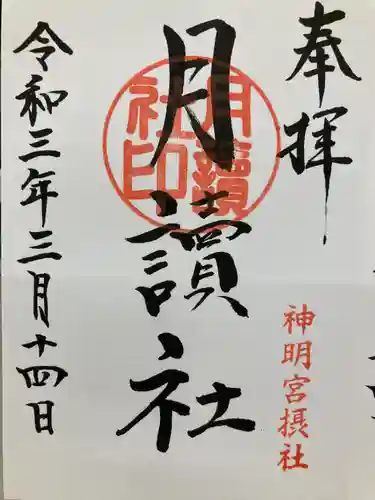 奉拝
神明宮摂社
月讀社
月讀社印
令和三年三月十四日